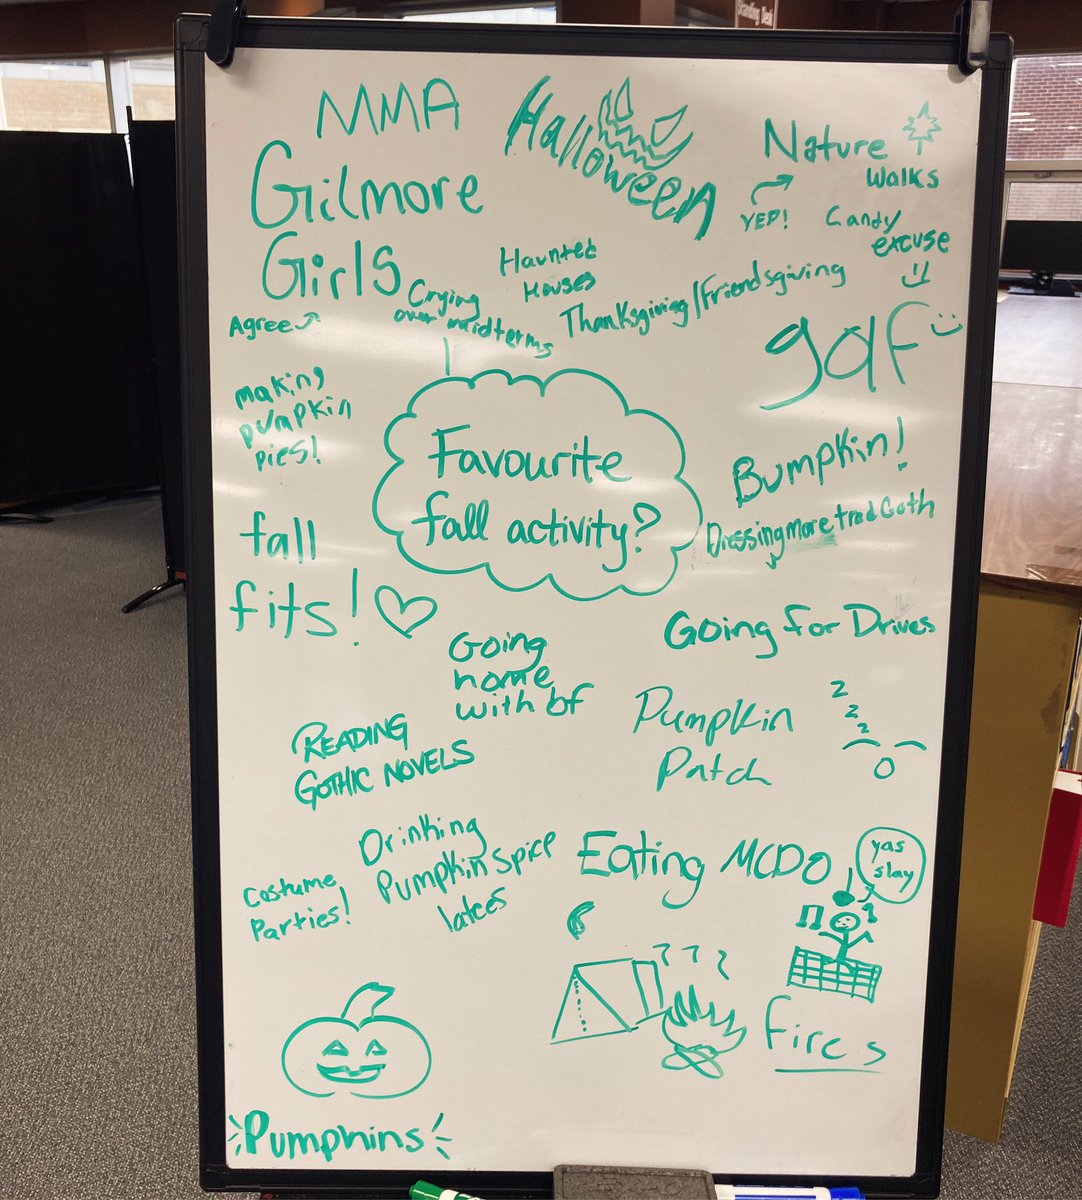 Standing Desk
MMA
Halloween
Nature
Walks
YEP!
Candy
excuse
Gilmore
Girls
Agree
Haunted
Houses
Crying
over midterms
Thanksgiving/Friendsgiving
gdf
making
pumpkin
pies!
Favourite
fall activity?
Bumpkin!
Dressing more trad Goth
fall
fits!
Going
home
with bf
Going for Drives
READING
GOTHIC NOVELS
Pumpkin
Patch
z
z
z
Drinking
Pumpkin Spice
lattes
Costume
Parties!
Eating MCDO
yas
slay
fires
Pumpkins